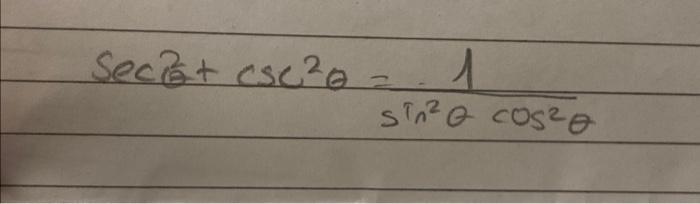 sec²θ + csc²θ = 1
sin²θ cos²θ